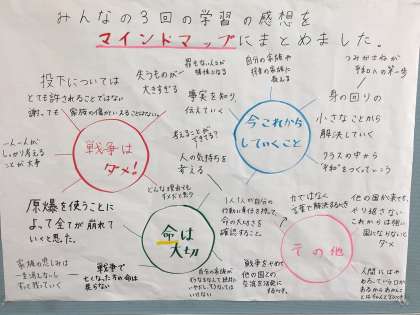 みんなの3回の学習の感想を
マインドマップにまとめました。
投下については
とても許されることではない
謝っても家族の傷がいえることはない
失うものが
大きすぎる
罪もない人々が
犠牲になる
事実を知り
伝えていく
自分の家族や
将来の家族に
教える
つみかさねが
平和への第一歩
身の回りの
小さなことから
解決していく
クラスの中から
"平和"をつくっていう
一人一人が
しっかり考える
ことが大事
戦争は
ダメ!
考えることが
できてる?
今これから
していくこと
人の気持ちを
考える
どんな理由でも
ダメだと思う
原爆を使うことに
よって全てが崩れて
いくと思った。
命は
大切
1人1人の自分の
行動に責任を持って
命の大切さを
確認すること。
力ではなく
言葉で解決するべき
他の国が来ても、
やり返さない
これからは強い
国にならないと
ダメ
その他
家族の悲しみは
一生消えない
ずっと残っていく
戦争で
亡くなった方の命は
戻らない
自分の家族が
戦争をやめて
他の国との
交流を活発に
するべき。
人間には